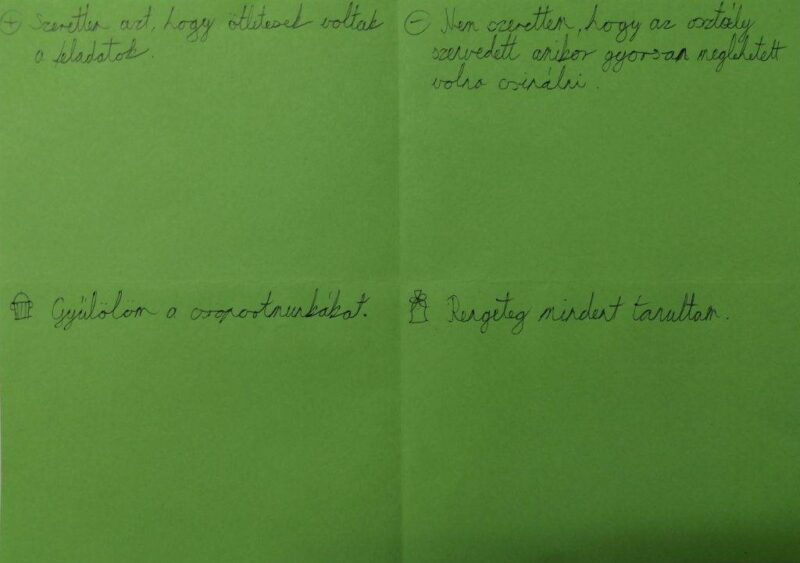 + Szerettem azt, hogy ötletesek voltak
a feladatok.
- Nem szerettem, hogy az osztály
szenvedett amikor gyorsan meglehetett
volna csinálni.
Gyűlölöm a csoportmunkákat.
Rengeteg mindent tanultam.